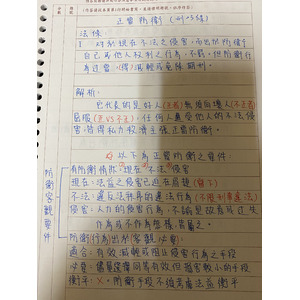 正當防衛 (刑§23條)
法條:
對於現在不法之侵害,而出於防衛
自己或他人權利之行為,不罰。但防衛行
為過當者,得減輕或免除其刑。
解析:
它代表的是好人(正義)無須向壞人(不正義)
屈服(正 v.s 不正),任何人遭受他人的不法侵
害,皆得私力救濟主張正當防衛。
以下為正當防衛之要件:
有防衛情狀:現在不法侵害
現在:法益之侵害已迫在眉睫
不法:違反法秩序的違法行為
侵害:人力的侵害行為,不論是故意或過失
作為或不作為態樣,皆屬之。
防衛(行為)出於(客觀)必要:
適合:有效減輕或阻止侵害行為之手段
必要:儘量選擇同等有效但損害較小的手段
衡平:防衛手段不採嚴格法益衡平
防衛客觀要件